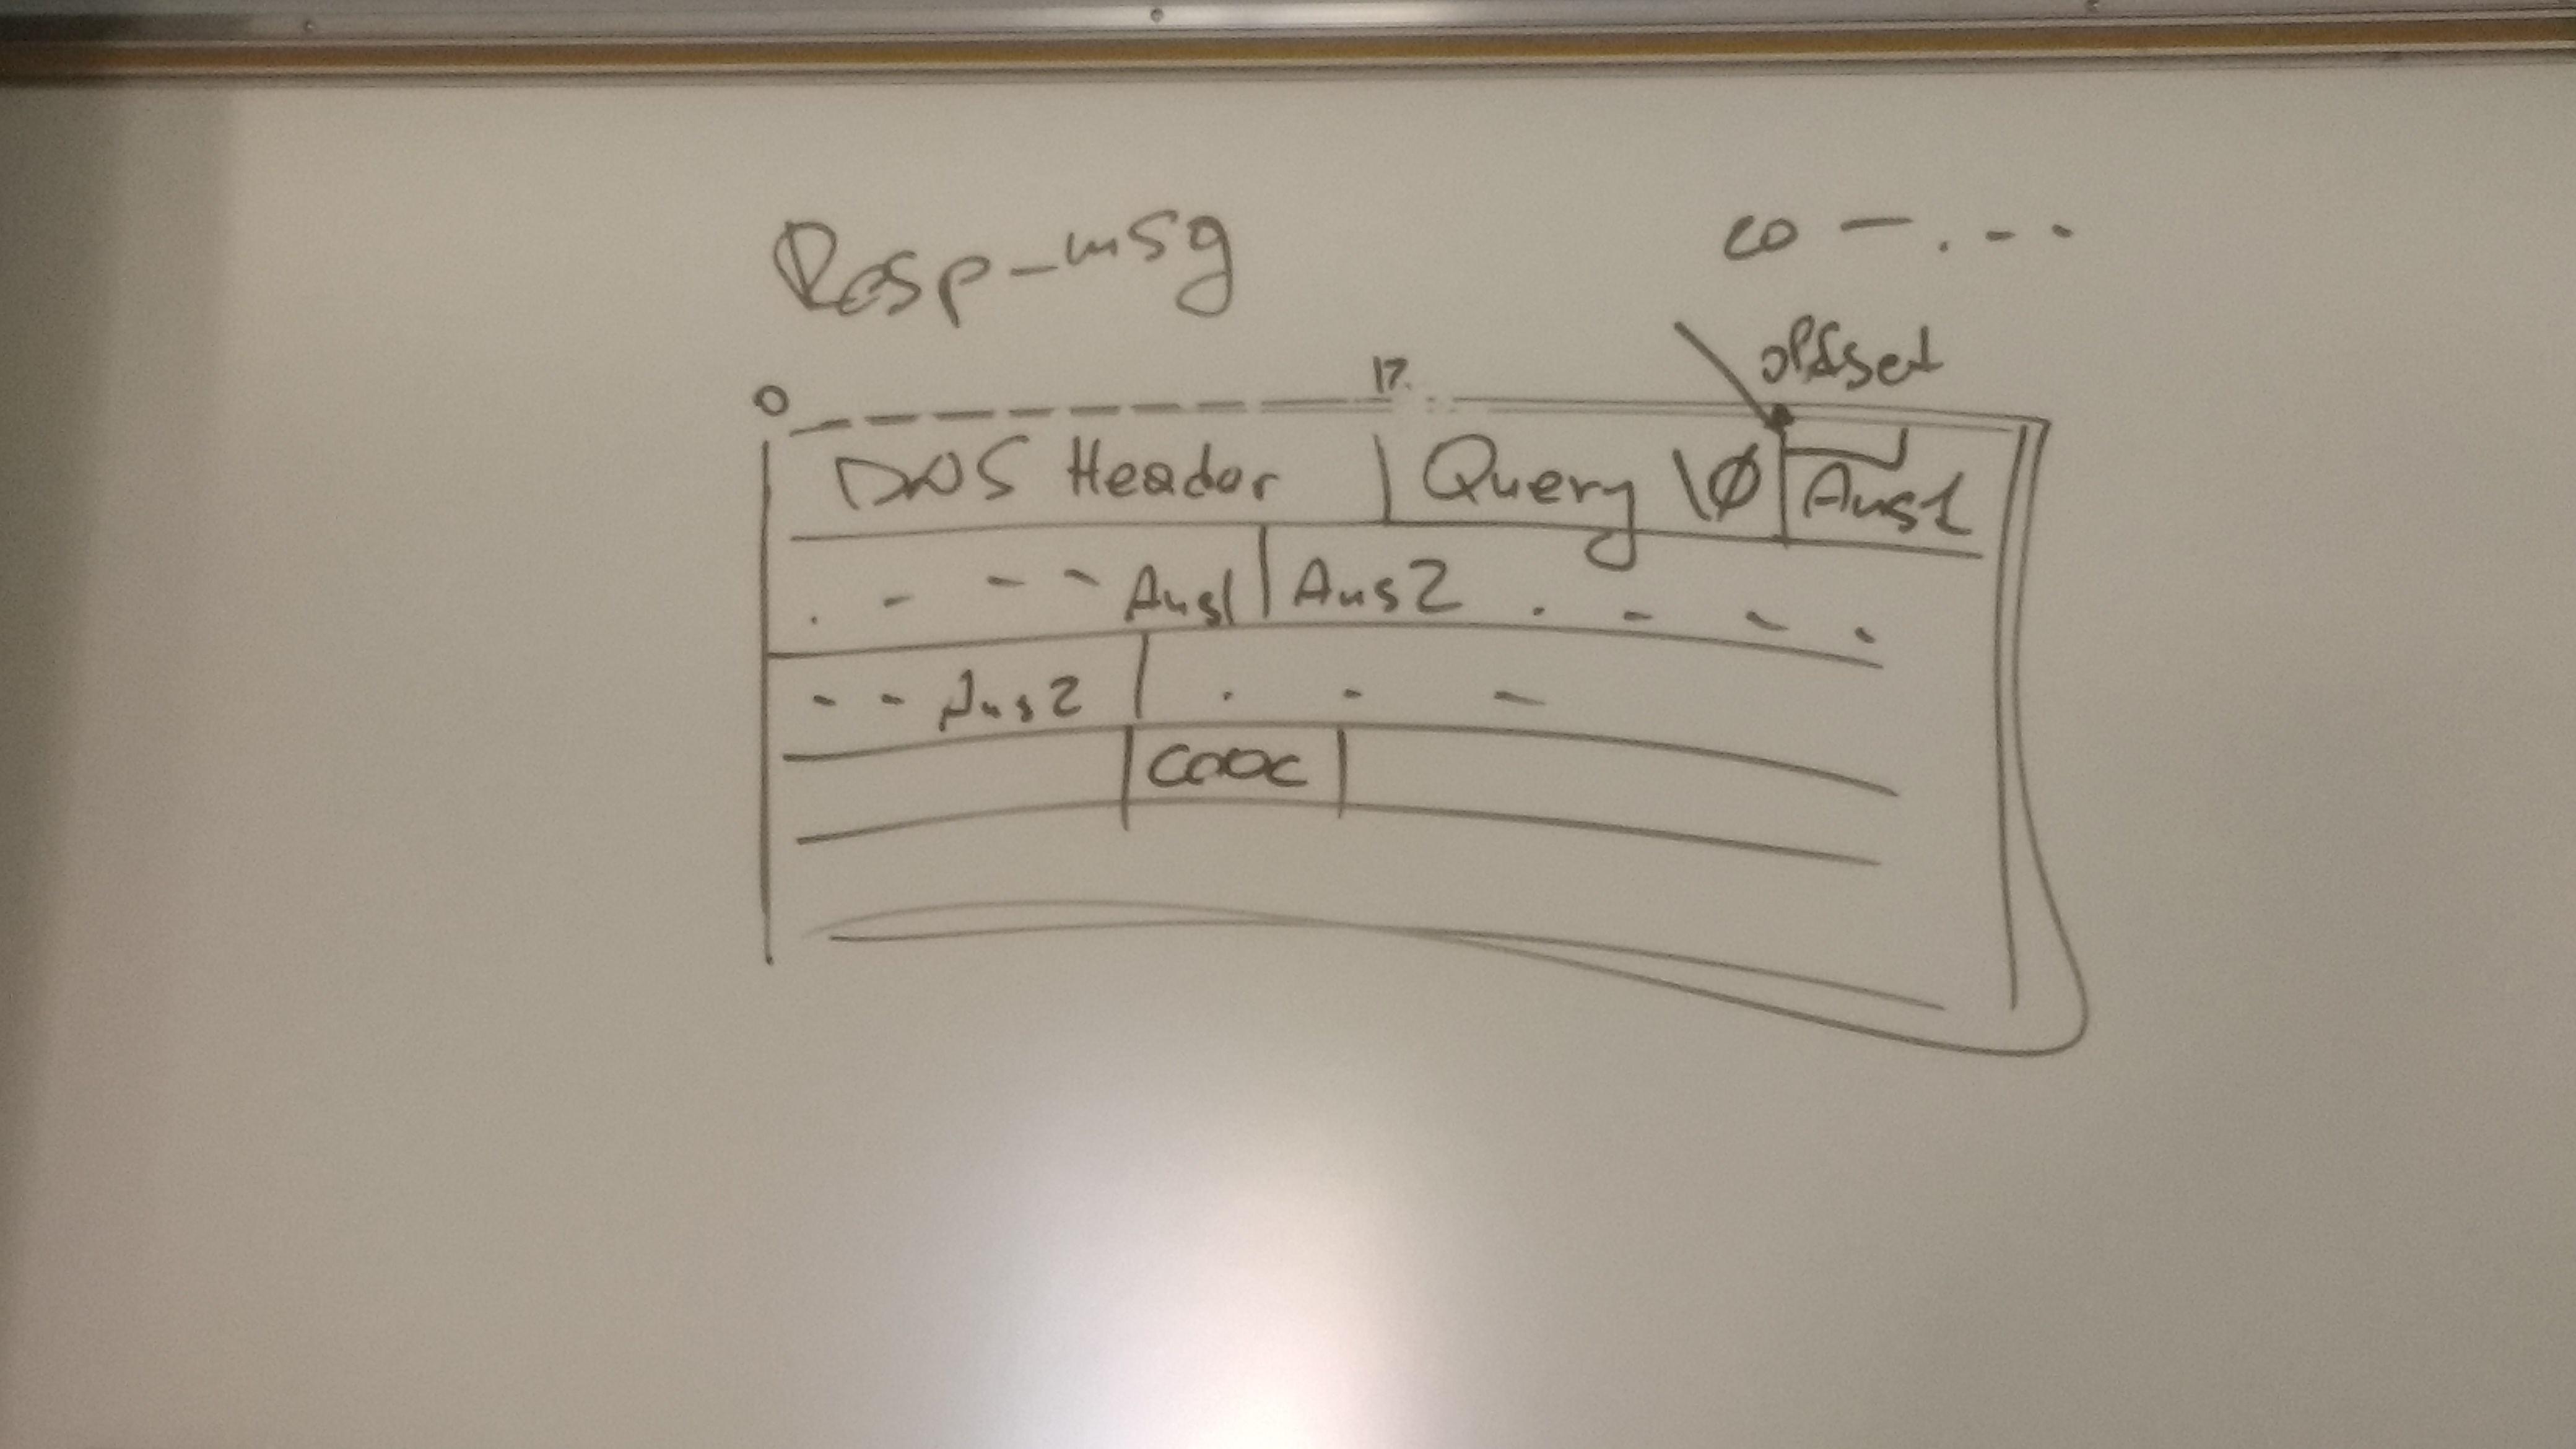 Resp_msg
co - . - - -
offset
0
DNS Header Query \0 Ans1
. - - - Ans1 Ans2 . - - .
- - Ans2 . - -
C00C